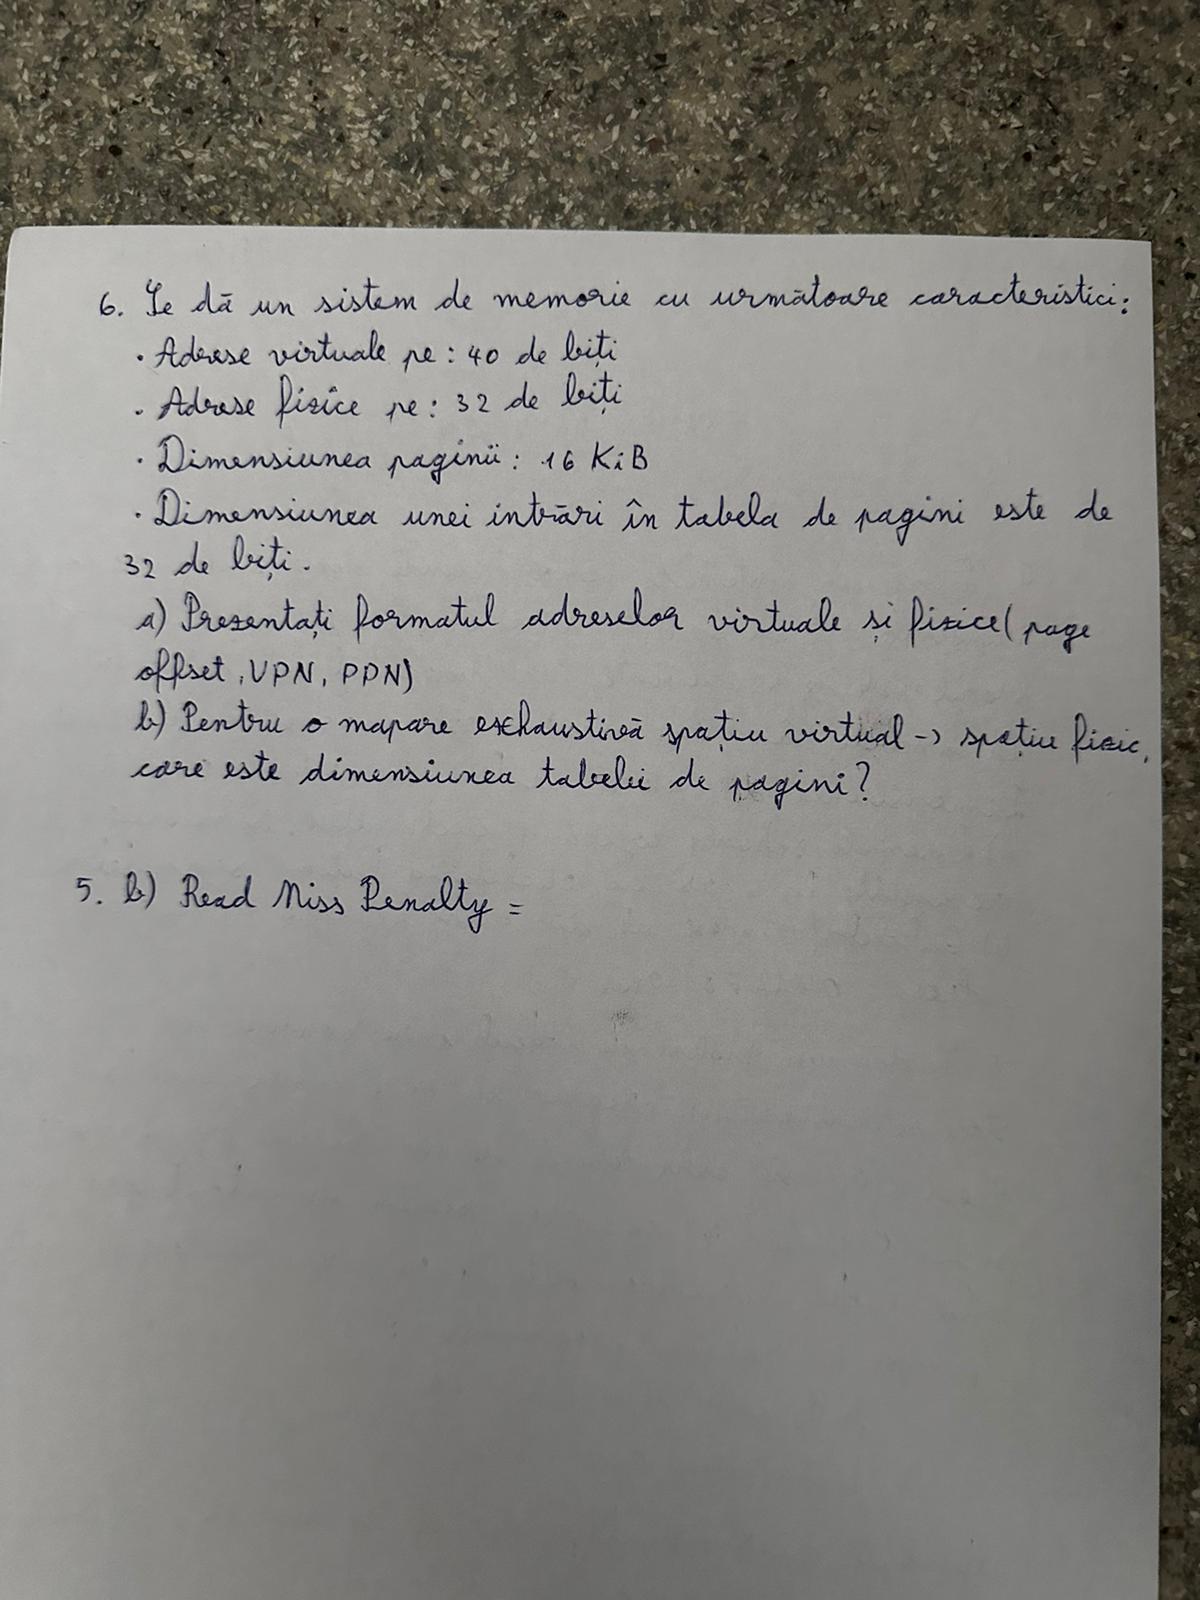 6. Se dă un sistem de memorie cu următoare caracteristici:
· Adrese virtuale pe: 40 de biți
· Adrese fizice pe: 32 de biți
· Dimensiunea paginii: 16 KiB
· Dimensiunea unei intrări în tabela de pagini este de
32 de biți.
a) Prezentați formatul adreselor virtuale și fizice (page
offset, VPN, PPN)
b) Pentru o mapare exhaustivă spațiu virtual -> spațiu fizic,
care este dimensiunea tabelei de pagini?
5. b) Read Miss Penalty =